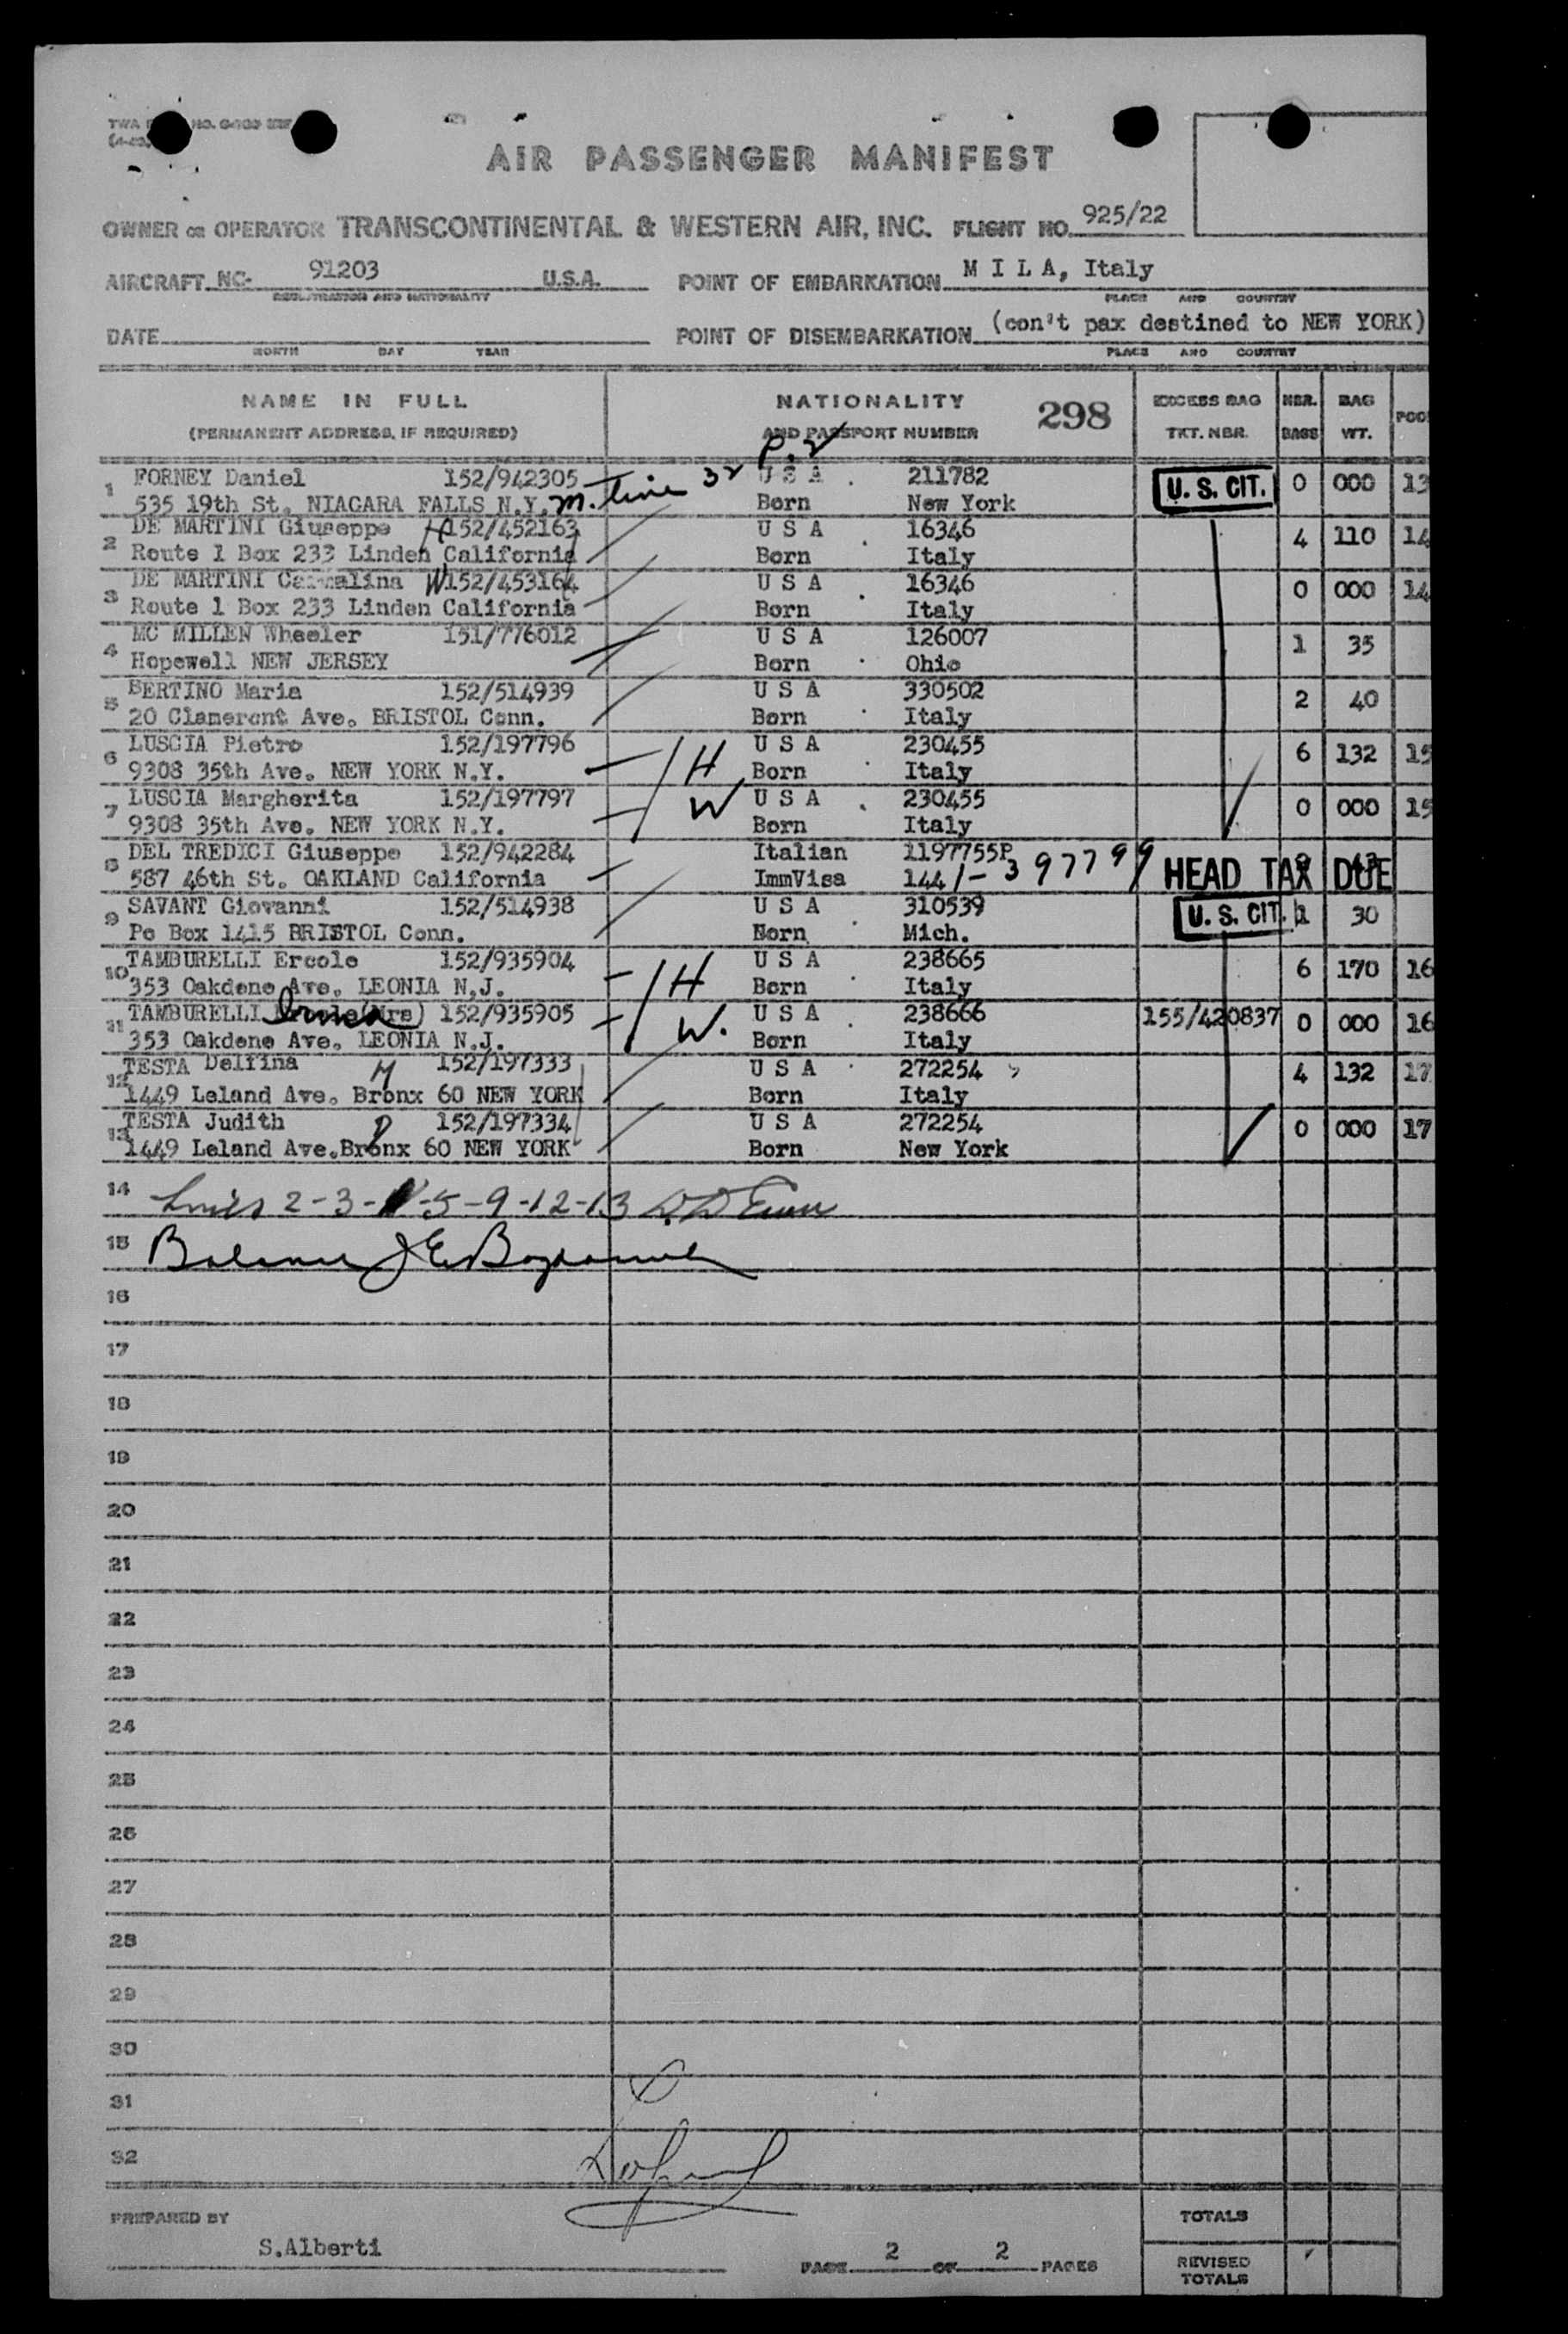 AIR PASSENGER MANIFEST
OWNER OR OPERATOR TRANSCONTINENTAL & WESTERN AIR, INC. FLIGHT NO. 925/22
AIRCRAFT NC- 91203 U.S.A. POINT OF EMBARKATION M I L A, Italy
REGISTRATION AND NATIONALITY PLACE AND COUNTRY
DATE POINT OF DISEMBARKATION (con't pax destined to NEW YORK)
MONTH DAY YEAR PLACE AND COUNTRY
NAME IN FULL NATIONALITY 298 EXCESS BAG NBR. BAG
(PERMANENT ADDRESS, IF REQUIRED) AND PASSPORT NUMBER TKT. NBR. BAGS WT. POO
P. 2
1 FORNEY Daniel 152/942305 U S A 211782 U. S. CIT. 0 000 13
535 19th St. NIAGARA FALLS N.Y. 32 Born New York
2 DE MARTINI Giuseppe H 152/452163 U S A 16346 4 110 14
Route 1 Box 233 Linden California Born Italy
3 DE MARTINI W 152/453164 U S A 16346 0 000 14
Route 1 Box 233 Linden California Born Italy
4 MC MILLEN Wheeler 151/776012 U S A 126007 1 35
Hopewell NEW JERSEY Born Ohio
5 BERTINO Maria 152/514939 U S A 330502 2 40
20 Clameront Ave. BRISTOL Conn. Born Italy
6 LUSCIA Pietro 152/197796 H U S A 230455 6 132 15
9308 35th Ave. NEW YORK N.Y. Born Italy
7 LUSCIA Margherita 152/197797 W U S A 230455 0 000 15
9308 35th Ave. NEW YORK N.Y. Born Italy
8 DEL TREDICI Giuseppe 152/942284 Italian 1197755P
587 46th St. OAKLAND California ImmVisa 144 1-397799 HEAD TAX DUE
9 SAVANT Giovanni 152/514938 U S A 310539 U. S. CIT. 1 30
Po Box 1415 BRISTOL Conn. Born Mich.
10 TAMBURELLI Ercole 152/935904 H U S A 238665 6 170 16
353 Oakdene Ave. LEONIA N.J. Born Italy
11 TAMBURELLI Irma (Mrs) 152/935905 W. U S A 238666 155/420837 0 000 16
353 Oakdene Ave. LEONIA N.J. Born Italy
12 TESTA Delfina M 152/197333 U S A 272254 4 132 17
1449 Leland Ave. Bronx 60 NEW YORK Born Italy
13 TESTA Judith D 152/197334 U S A 272254 0 000 17
1449 Leland Ave.Bronx 60 NEW YORK Born New York
14 2-3- -5-9-12-13
15 Balance
16
17
18
19
20
21
22
23
24
25
26
27
28
29
30
31
32
PREPARED BY TOTALS
S.Alberti PAGE 2 OF 2 PAGES REVISED
TOTALS